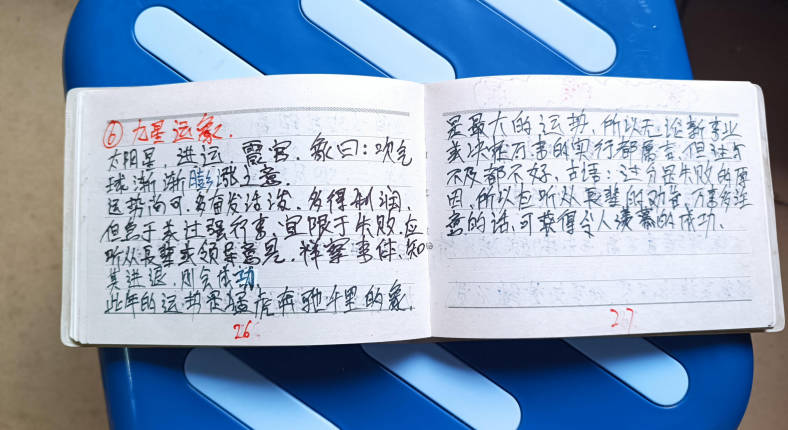 ⑥九星运象.
太阳星.进运.震宫.象曰:吹气
球渐渐膨涨之意.
运势尚可.多奋发活泼.多得利润.
但急于表社强行者.宜限于失败.应
听从长辈或领导意见.详察事件.知
其进退.则会成功.
此年的运势是猛虎奔驰千里的象.
26
是最大的运势.所以无论新事业
或决柾万事的实行都属吉.但过与
不及都不好.古语:过分是失败的原
因.所以应听从长辈的劝告.万事多注
意的话.可获得令人羡慕的成功.
27